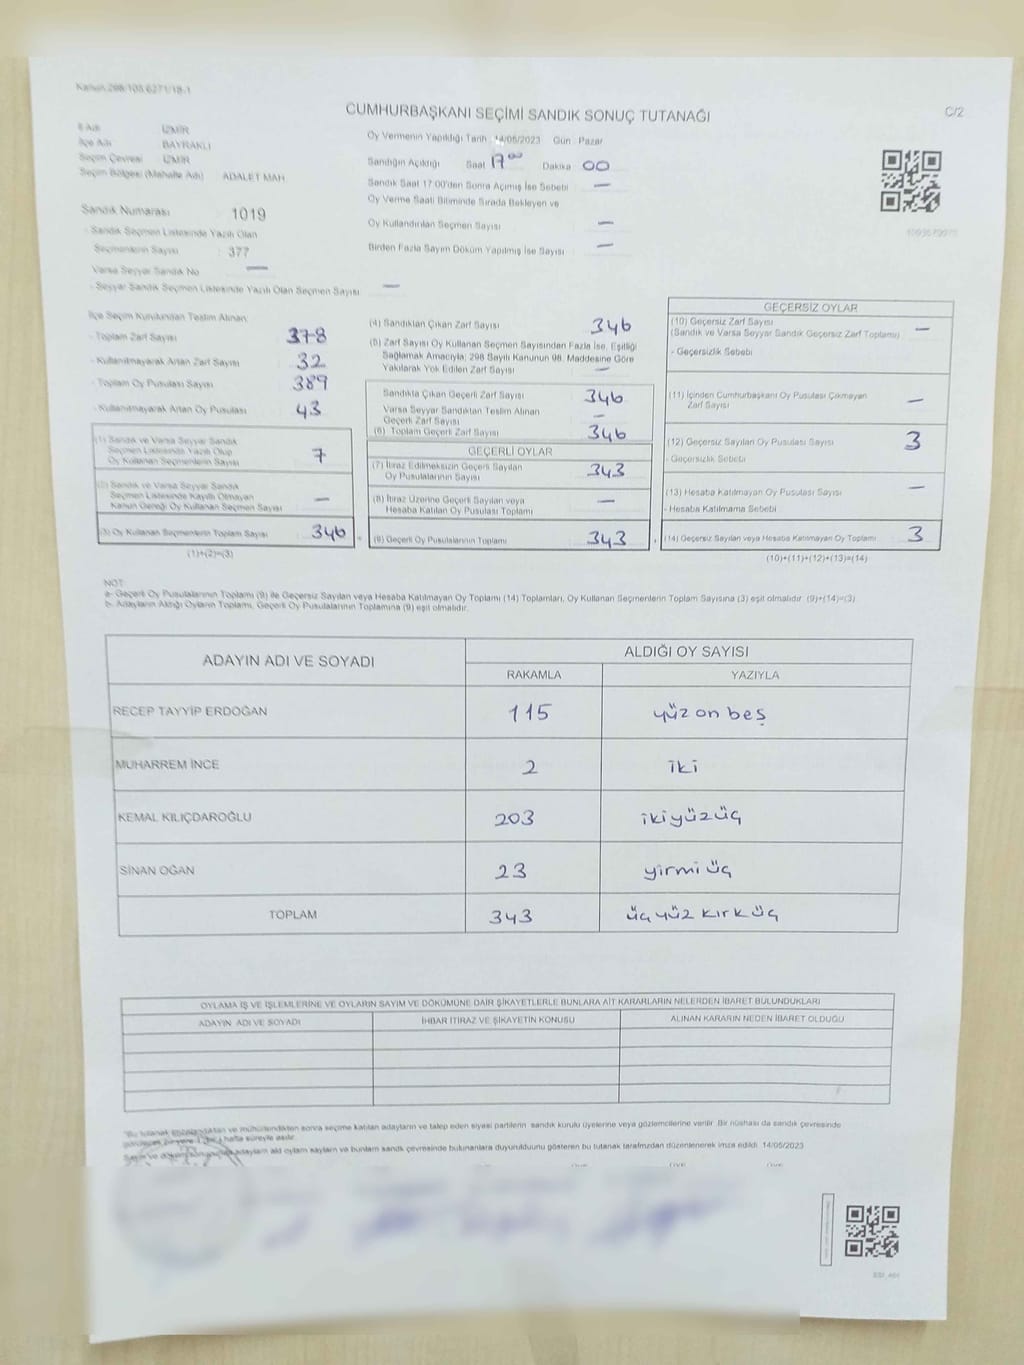 Kanun:298/105,6271/18-1
CUMHURBAŞKANI SEÇİMİ SANDIK SONUÇ TUTANAĞI
C/2
İl Adı İZMİR
İlçe Adı BAYRAKLI
Seçim Çevresi İZMİR
Seçim Bölgesi (Mahalle Adı) ADALET MAH
Sandık Numarası 1019
- Sandık Seçmen Listesinde Yazılı Olan
Seçmenlerin Sayısı : 377
Varsa Seyyar Sandık No —
- Seyyar Sandık Seçmen Listesinde Yazılı Olan Seçmen Sayısı —
Oy Vermenin Yapıldığı Tarih : 14/05/2023 Gün : Pazar
Sandığın Açıldığı Saat 17⁰⁰ Dakika 00
Sandık Saat 17:00'den Sonra Açımış İse Sebebi —
Oy Verme Saati Bitiminde Sırada Bekleyen ve
Oy Kullandırılan Seçmen Sayısı —
Birden Fazla Sayım Döküm Yapılmış İse Sayısı —
İlçe Seçim Kurulundan Teslim Alınan:
- Toplam Zarf Sayısı 378
- Kullanılmayarak Artan Zarf Sayısı 32
- Toplam Oy Pusulası Sayısı 389
- Kullanılmayarak Artan Oy Pusulası 43
(1) Sandık ve Varsa Seyyar Sandık
Seçmen Listesinde Yazılı Olup
Oy Kullanan Seçmenlerin Sayısı 7
(2) Sandık ve Varsa Seyyar Sandık
Seçmen Listesinde Kayıtlı Olmayan
Kanun Gereği Oy Kullanan Seçmen Sayısı —
(3) Oy Kullanan Seçmenlerin Toplam Sayısı 346
(1)+(2)=(3)
(4) Sandıktan Çıkan Zarf Sayısı 346
(5) Zarf Sayısı Oy Kullanan Seçmen Sayısından Fazla İse, Eşitliği
Sağlamak Amacıyla; 298 Sayılı Kanunun 98. Maddesine Göre
Yakılarak Yok Edilen Zarf Sayısı —
Sandıkta Çıkan Geçerli Zarf Sayısı 346
Varsa Seyyar Sandıktan Teslim Alınan
Geçerli Zarf Sayısı —
(6) Toplam Geçerli Zarf Sayısı 346
GEÇERLİ OYLAR
(7) İtiraz Edilmeksizin Geçerli Sayılan
Oy Pusulalarının Sayısı 343
(8) İtiraz Üzerine Geçerli Sayılan veya
Hesaba Katılan Oy Pusulası Toplamı —
(9) Geçerli Oy Pusulalarının Toplamı 343
GEÇERSİZ OYLAR
(10) Geçersiz Zarf Sayısı
(Sandık ve Varsa Seyyar Sandık Geçersiz Zarf Toplamı) —
- Geçersizlik Sebebi
(11) İçinden Cumhurbaşkanı Oy Pusulası Çıkmayan
Zarf Sayısı —
(12) Geçersiz Sayılan Oy Pusulası Sayısı 3
- Geçersizlik Sebebi
(13) Hesaba Katılmayan Oy Pusulası Sayısı —
- Hesaba Katılmama Sebebi
(14) Geçersiz Sayılan veya Hesaba Katılmayan Oy Toplamı 3
(10)+(11)+(12)+(13)=(14)
NOT:
a- Geçerli Oy Pusulalarının Toplamı (9) ile Geçersiz Sayılan veya Hesaba Katılmayan Oy Toplamı (14) Toplamları, Oy Kullanan Seçmenlerin Toplam Sayısına (3) eşit olmalıdır. (9)+(14)=(3)
b- Adayların Aldığı Oyların Toplamı, Geçerli Oy Pusulalarının Toplamına (9) eşit olmalıdır.
ADAYIN ADI VE SOYADI ALDIĞI OY SAYISI
RAKAMLA YAZIYLA
RECEP TAYYİP ERDOĞAN 115 yüz on beş
MUHARREM İNCE 2 iki
KEMAL KILIÇDAROĞLU 203 ikiyüzüç
SİNAN OĞAN 23 yirmi üç
TOPLAM 343 üç yüz kırk üç
OYLAMA İŞ VE İŞLEMLERİNE VE OYLARIN SAYIM VE DÖKÜMÜNE DAİR ŞİKAYETLERLE BUNLARA AİT KARARLARIN NELERDEN İBARET BULUNDUKLARI
ADAYIN ADI VE SOYADI İHBAR İTİRAZ VE ŞİKAYETİN KONUSU ALINAN KARARIN NEDEN İBARET OLDUĞU
"Bu tutanak imzalandıktan ve mühürlendikten sonra seçime katılan adayların ve talep eden siyasi partilerin sandık kurulu üyelerine veya gözlemcilerine verilir. Bir nüshası da sandık çevresinde
hafta süreyle asılır.
adayların oyların sayıları ve bunların sandık çevresinde bulunanlara duyurulduunu gösteren bu tutanak tarafımızdan düzenlenerek imza edildi. 14/05/2023